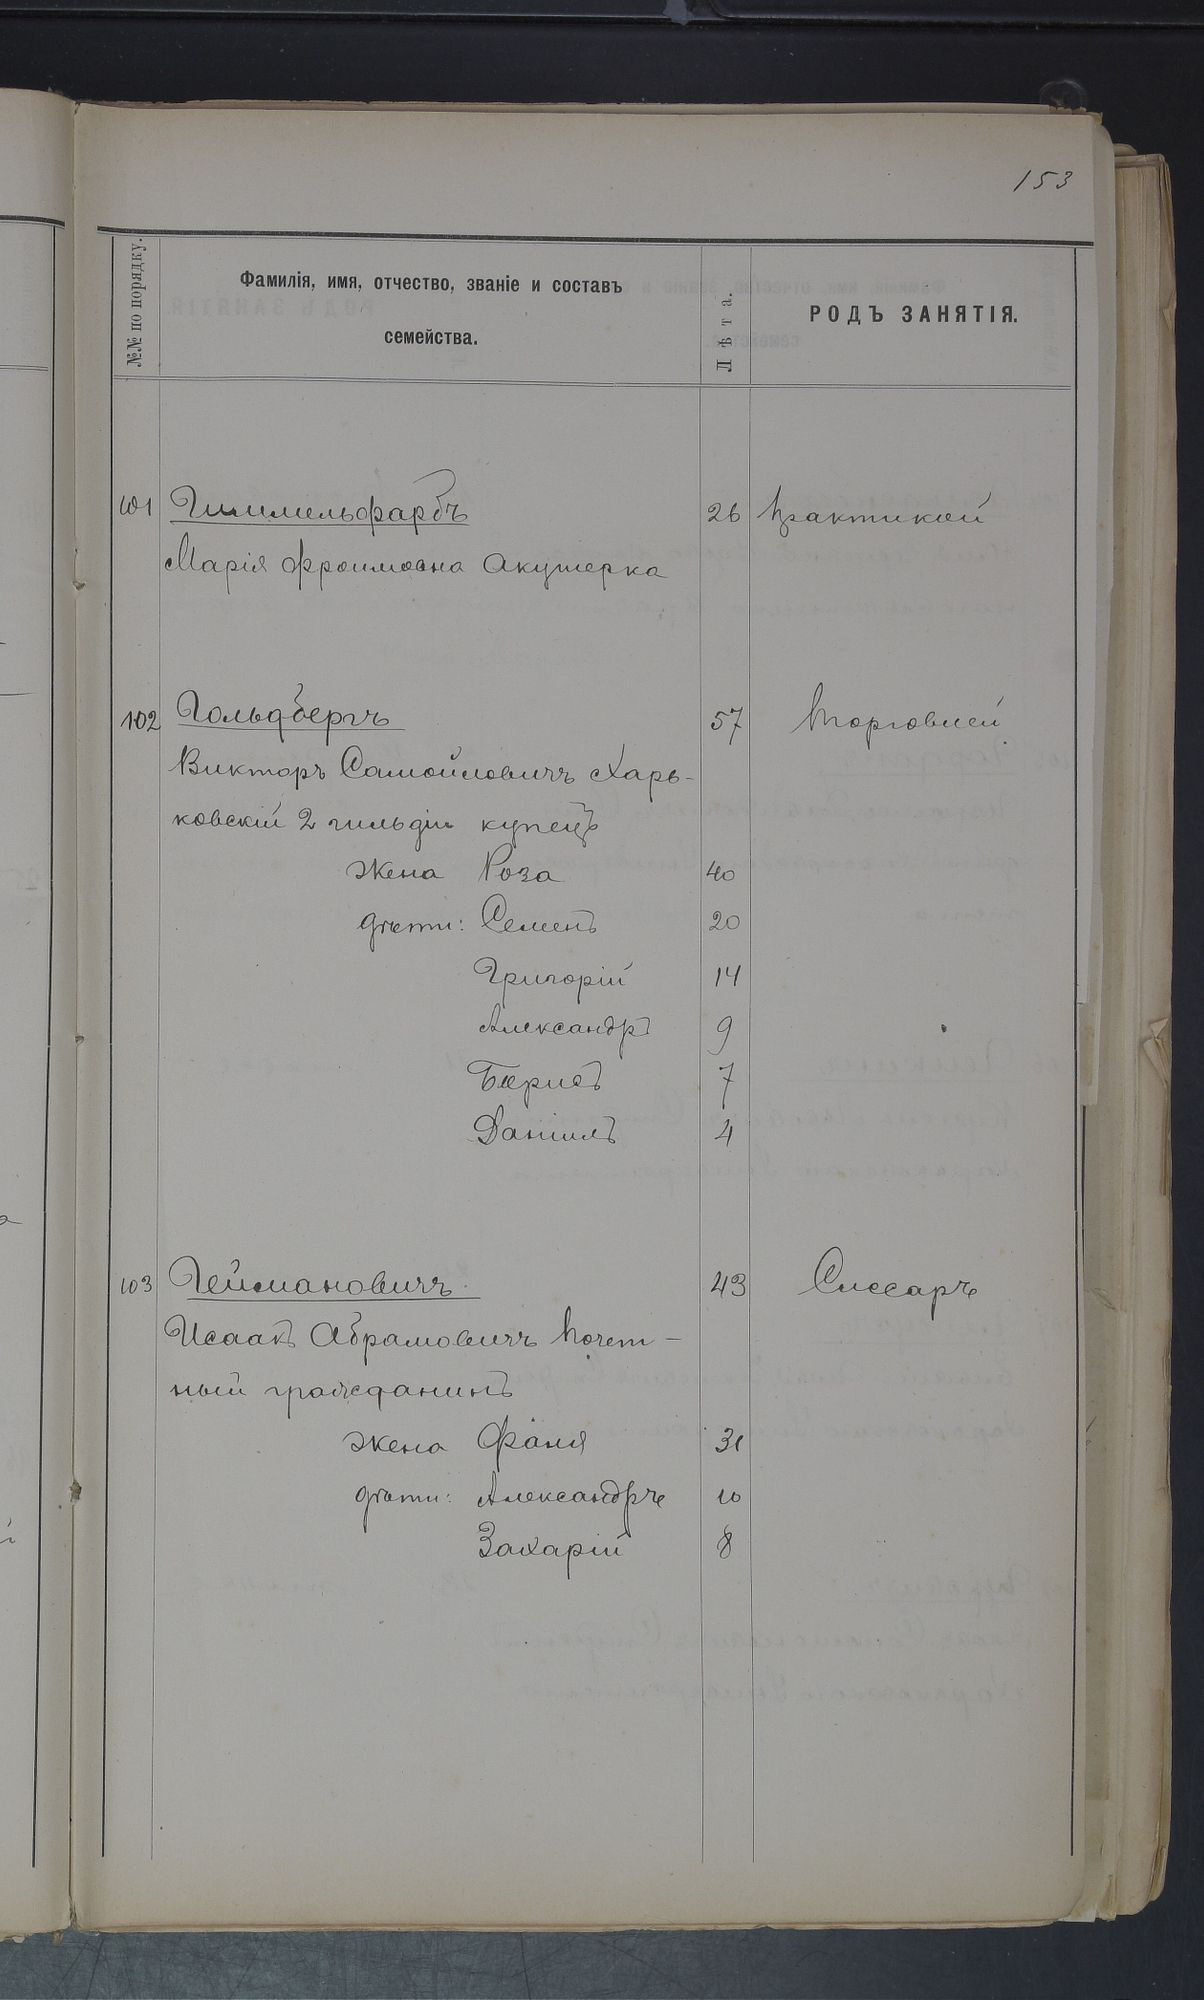 153
№№ по порядку.
Фамилія, имя, отчество, званіе и составъ
семейства.
Лѣта.
РОДЪ ЗАНЯТІЯ.
101 Гиммельфарбъ 26 практикой
Марія Фроимовна Акушерка
102 Гольдбергъ 57 торговлей
Викторъ Самойловичъ Харь-
ковскій 2 гильдіи купецъ
жена Роза 40
дѣти: Семенъ 20
Григорій 14
Александръ 9
Борисъ 7
Даніилъ 4
103 Геймановичъ 43 Слесаръ
Исаакъ Абрамовичъ почет-
ный гражданинъ
жена Фаня 31
дѣти: Александръ 10
Захарій 8